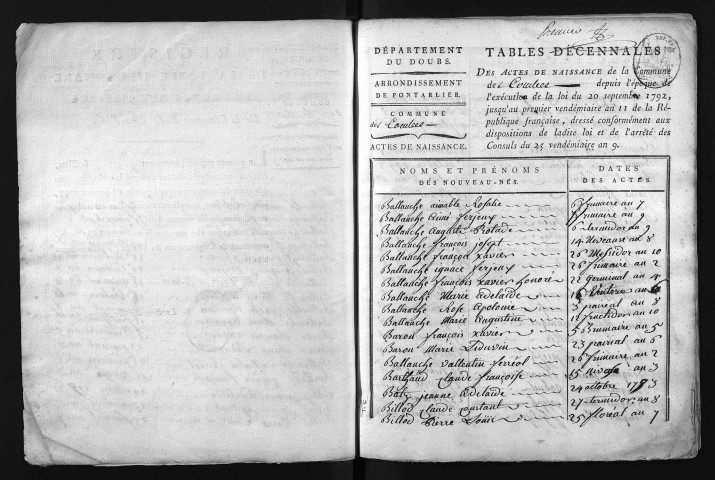 DÉPARTEMENT
DU DOUBS.
ARRONDISSEMENT
DE PONTARLIER.
COMMUNE
des Combes
ACTES DE NAISSANCE.
TABLES DÉCENNALES
DES ACTES DE NAISSANCE de la Commune
des Combes depuis l'époque de
l'exécution de la loi du 20 septembre 1792,
jusqu'au premier vendémiaire an 11 de la Ré-
publique française, dressé conformément aux
dispositions de ladite loi et de l'arrêté des
Consuls du 25 vendémiaire an 9.
NOMS ET PRÉNOMS
DES NOUVEAU-NÉS.
DATES
DES ACTES.
Ballanche aimable Rosalie 6 frimaire an 7
Ballanche aimé ferjeux frimaire an 9
Ballanche Auguste Protade 6 termidor an 9
Ballanche françois josept 14 Nivause an 8
Ballanche françois xavier 26 Messidor an 10
Ballanche ignace ferjeux 26 frimaire an 2
Ballanche françois xavier honoré 22 germinal an 4
Ballanche Marie Adelaide Ventose an
Ballanche Rose Apolonie 3 pairéal an 8
Ballanche Marie Augustine 12 fructidor an 10
Baron françois xavier 5 Brumaire an 5
Baron Marie 23 pairial an 6
Ballanche vallentin ferréol 26 frimaire an 2
Barthaud Claude françoise 15 an 3
jeanne Adelaide 24 octobre 1793
Billod Claude Constant 27 termidor an 8
Billod Pierre Louis 25 floréal an 7